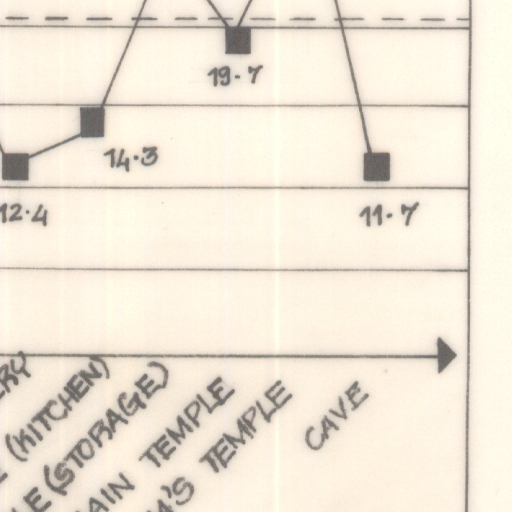 19.7
14.3
12.4
11.7
(KITCHEN)
(STORAGE)
TEMPLE
TEMPLE
CAVE